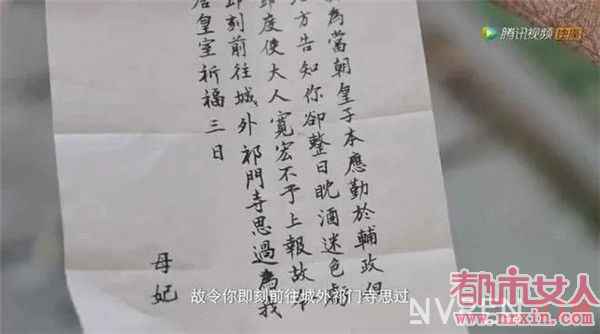 為當朝皇子本應勤於輔政但
方告知你卻整日眈酒迷色
度使大人寬宏不予上報故
即刻前往城外祁門寺思過為我
皇室祈福三日
母妃
故令你即刻前往城外祁门寺思过
腾讯视频
都市女人
www.nrxin.com